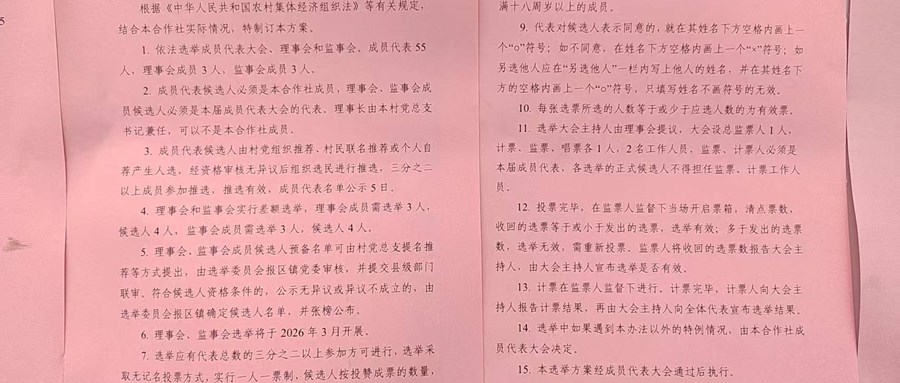 5
根据《中华人民共和国农村集体经济组织法》等有关规定，
结合本合作社实际情况，特制订本方案。
1. 依法选举成员代表大会、理事会和监事会。成员代表 55
人，理事会成员 3 人，监事会成员 3 人。
2. 成员代表候选人必须是本合作社成员，理事会、监事会成
员候选人必须是本届成员代表大会的代表。理事长由本村党总支
书记兼任，可以不是本合作社成员。
3. 成员代表候选人由村党组织推荐、村民联名推荐或个人自
荐产生人选，经资格审核无异议后组织选民进行推选，三分之二
以上成员参加推选，推选有效，成员代表名单公示 5 日。
4. 理事会和监事会实行差额选举，理事会成员需选举 3 人，
候选人 4 人，监事会成员需选举 3 人，候选人 4 人。
5. 理事会、监事会成员候选人预备名单可由村党总支提名推
荐等方式提出，由选举委员会报区镇党委审核，并提交县级部门
联审。符合候选人资格条件的，公示无异议或异议不成立的，由
选举委员会报区镇确定候选人名单，并张榜公布。
6. 理事会、监事会选举将于 2026 年 3 月开展。
7. 选举应有代表总数的三分之二以上参加方可进行，选举采
取无记名投票方式，实行一人一票制，候选人按投赞成票的数量，
满十八周岁以上的成员。
9. 代表对候选人表示同意的，就在其姓名下方空格内画上一
个“o”符号；如不同意，在姓名下方空格内画上一个“×”符号；如
另选他人应在“另选他人”一栏内写上他人的姓名，并在其姓名下
方的空格内画上一个“o”符号，只填写姓名不画符号的无效。
10. 每张选票所选的人数等于或少于应选人数的为有效票。
11. 选举大会主持人由理事会提议，大会设总监票人 1 人，
计票、监票，唱票各 1 人，2 名工作人员，监票、计票人必须是
本届成员代表，各选举的正式候选人不得担任监票、计票工作人
员。
12. 投票完毕，在监票人监督下当场开启票箱，清点票数，
收回的选票等于或少于发出的选票，选举有效；多于发出的选票
数，选举无效，需重新投票。监票人将收回的选票数报告大会主
持人，由大会主持人宣布选举是否有效。
13. 计票在监票人监督下进行。计票完毕，计票人向大会主
持人报告计票结果，再由大会主持人向全体代表宣布选举结果。
14. 选举中如果遇到本办法以外的特例情况，由本合作社成
员代表大会决定。
15. 本选举方案经成员代表大会通过后执行。